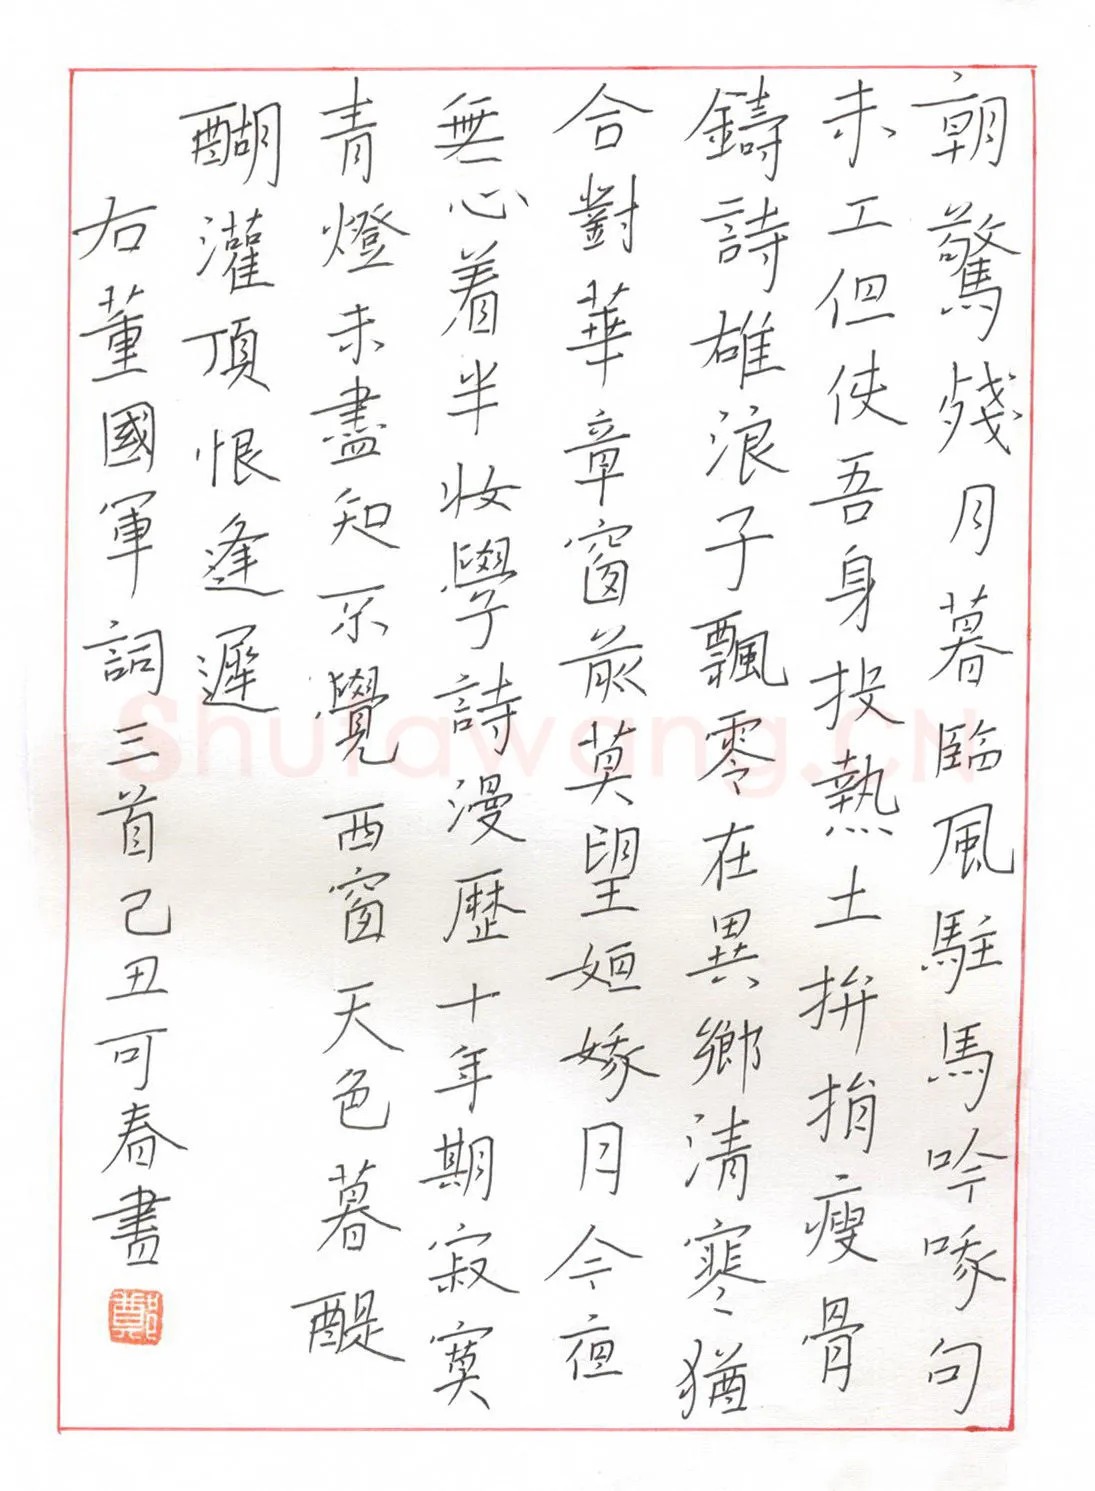 朝驚殘月暮臨風駐馬吟啄句
未工但使吾身投熱土拚捐瘦骨
鑄詩雄浪子飄零在異鄉清寒猶
合對華章窗前莫望姮娥月今夜
無心着半妆學詩漫歷十年期寂寞
青燈未盡知不覺西窗天色暮醍
醐灌頂恨逢遲
右董國軍詞三首己丑可春書
鄭
Shufawang.CN